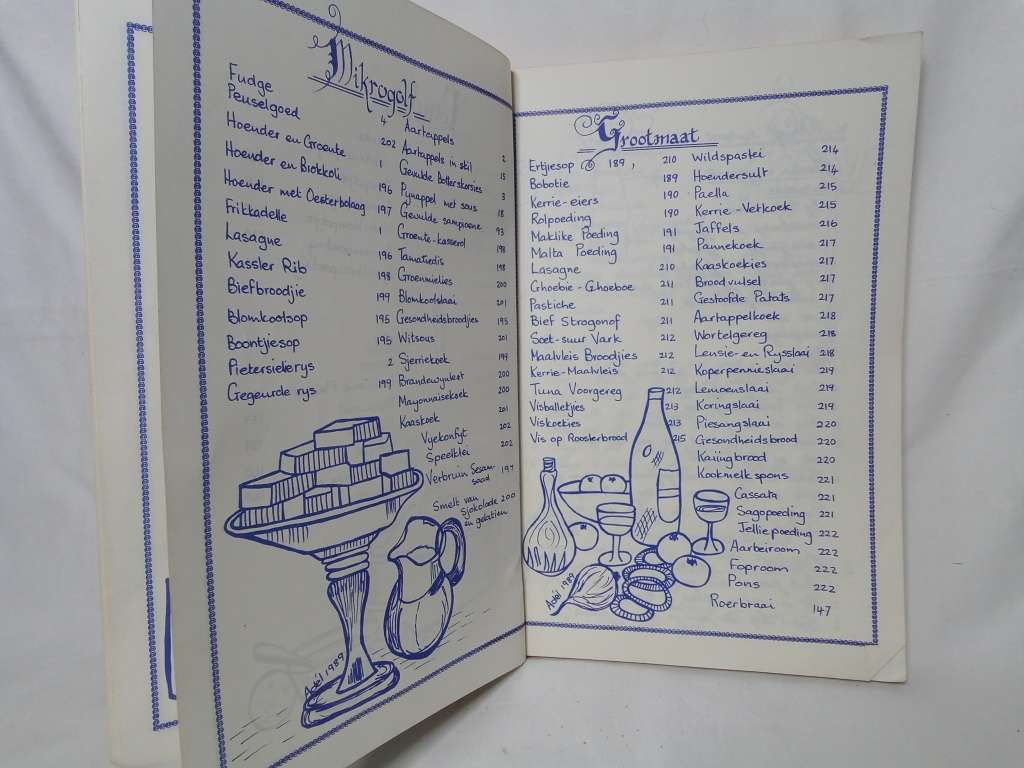 Mikrogolf
Fudge 4
Peuselgoed 202
Hoender en Groente 1
Hoender en Blokkoli 196
Hoender met Oesterbolaag 197
Frikkadelle 1
Lasagne 196
Kassler Rib 198
Biefbroodjie 199
Blomkoolsop 195
Boontjiesop 195
Pietersielierys 2
Gegeurde rys 199
Aartappels 2
Aartappels in skil 15
Gevulde Botterskorsies 3
Pynappel met sous 18
Gevulde sampioene 93
Groente-kasserol 198
Tamatiedis 198
Groenmielies 200
Blomkoolslaai 201
Gesondheidsbroodjies 195
Witsous 201
Sjerriekoek 199
Brandewyntert 200
Mayonnaisekoek 200
Kaaskoek 201
Vyekonfyt 202
Speelklei 202
Verbruin Sesam-
saad 197
Smelt van
Sjokolade 200
en gelatien
Adéil 1989
Grootmaat
Ertjiesop 189, 210
Bobotie 189
Kerrie-eiers 190
Rolpoeding 190
Maklike Poeding 191
Malta Poeding 191
Lasagne 210
Ghoebie-Ghoeboe 211
Pastiche 211
Bief Strogonof 211
Soet-suur Vark 212
Maalvleis Broodjies 212
Kerrie-Maalvleis 212
Tuna Voorgereg 212
Visballetjies 213
Viskoekies 213
Vis op Roosterbrood 215
Wildspastei 214
Hoendersult 214
Paella 215
Kerrie-Vetkoek 215
Jaffels 216
Pannekoek 217
Kaaskoekies 217
Broodvulsel 217
Gestoofde Patats 217
Aartappelkoek 218
Wortelgereg 218
Lensie-en Rysslaai 218
Koperpennieslaai 219
Lemoenslaai 219
Koringslaai 219
Piesangslaai 220
Gesondheidsbrood 220
Kaiingbrood 220
Kookmelkspons 221
Cassata 221
Sagopoeding 221
Jelliepoeding 222
Aarbeiroom 222
Foproom 222
Pons 222
Roerbraai 147
Adéil 1989